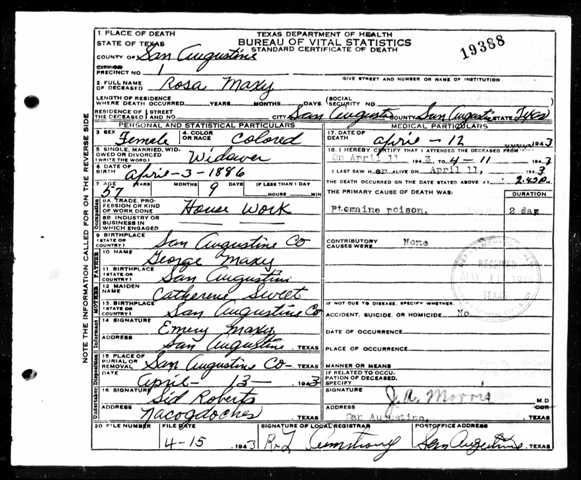 1 PLACE OF DEATH
TEXAS DEPARTMENT OF HEALTH
BUREAU OF VITAL STATISTICS
STANDARD CERTIFICATE OF DEATH
19388
STATE OF TEXAS
COUNTY OF San Augustine
CITY OR
PRECINCT NO. 1
GIVE STREET AND NUMBER OR NAME OF INSTITUTION
2 FULL NAME OF DECEASED Rosa Maxy
LENGTH OF RESIDENCE WHERE DEATH OCCURRED YEARS MONTHS DAYS (SOCIAL SECURITY NO.
RESIDENCE OF THE DECEASED STREET AND NO. CITY San Augustine COUNTY San Augustine STATE Texas
PERSONAL AND STATISTICAL PARTICULARS
3 SEX Female 4 COLOR OR RACE Colored
5 SINGLE, MARRIED, WIDOWED OR DIVORCED (WRITE THE WORD) Widower
6 DATE OF BIRTH April-3-1886
7 AGE 57 MONTHS 9 IF LESS THAN 1 DAY HOURS MIN
8A TRADE, PROFESSION OR KIND OF WORK DONE House Work
8B INDUSTRY OR BUSINESS IN WHICH ENGAGED
9 BIRTHPLACE (STATE OR COUNTRY) San Augustine Co
10 NAME George Maxy
11 BIRTHPLACE (STATE OR COUNTRY) San Augustine
12 MAIDEN NAME Catherene Sweet
13 BIRTHPLACE (STATE OR COUNTRY) San Augustine Co
14 SIGNATURE Emery Maxy
ADDRESS San Augustine TEXAS
15 PLACE OF BURIAL OR REMOVAL San Augustine Co- TEXAS
DATE April-13- 1943
16 SIGNATURE Sid Roberts
ADDRESS Nacogdoches TEXAS
MEDICAL PARTICULARS
17 DATE OF DEATH April-12 1943
18 I HEREBY CERTIFY THAT I ATTENDED THE DECEASED FROM
On April 11 1943 TO 4-11 1943
I LAST SAW H er ALIVE ON April 11, 1943
THE DEATH OCCURRED ON THE DATE STATED ABOVE AT
THE PRIMARY CAUSE OF DEATH WAS: DURATION
Ptomaine poison. 2 day
CONTRIBUTORY CAUSES WERE: None
IF NOT DUE TO DISEASE, SPECIFY WHETHER:
ACCIDENT, SUICIDE, OR HOMICIDE No
DATE OF OCCURRENCE
PLACE OF OCCURRENCE
MANNER OR MEANS
IF RELATED TO OCCUPATION OF DECEASED, SPECIFY
SIGNATURE J. A. Morris M.D.
ADDRESS San Augustine, TEXAS
20 FILE NUMBER FILE DATE 4-15 1943 SIGNATURE OF LOCAL REGISTRAR R. L. Armstrong POSTOFFICE ADDRESS San Augustine, TEXAS
NOTE THE INFORMATION CALLED FOR ON THE REVERSE SIDE